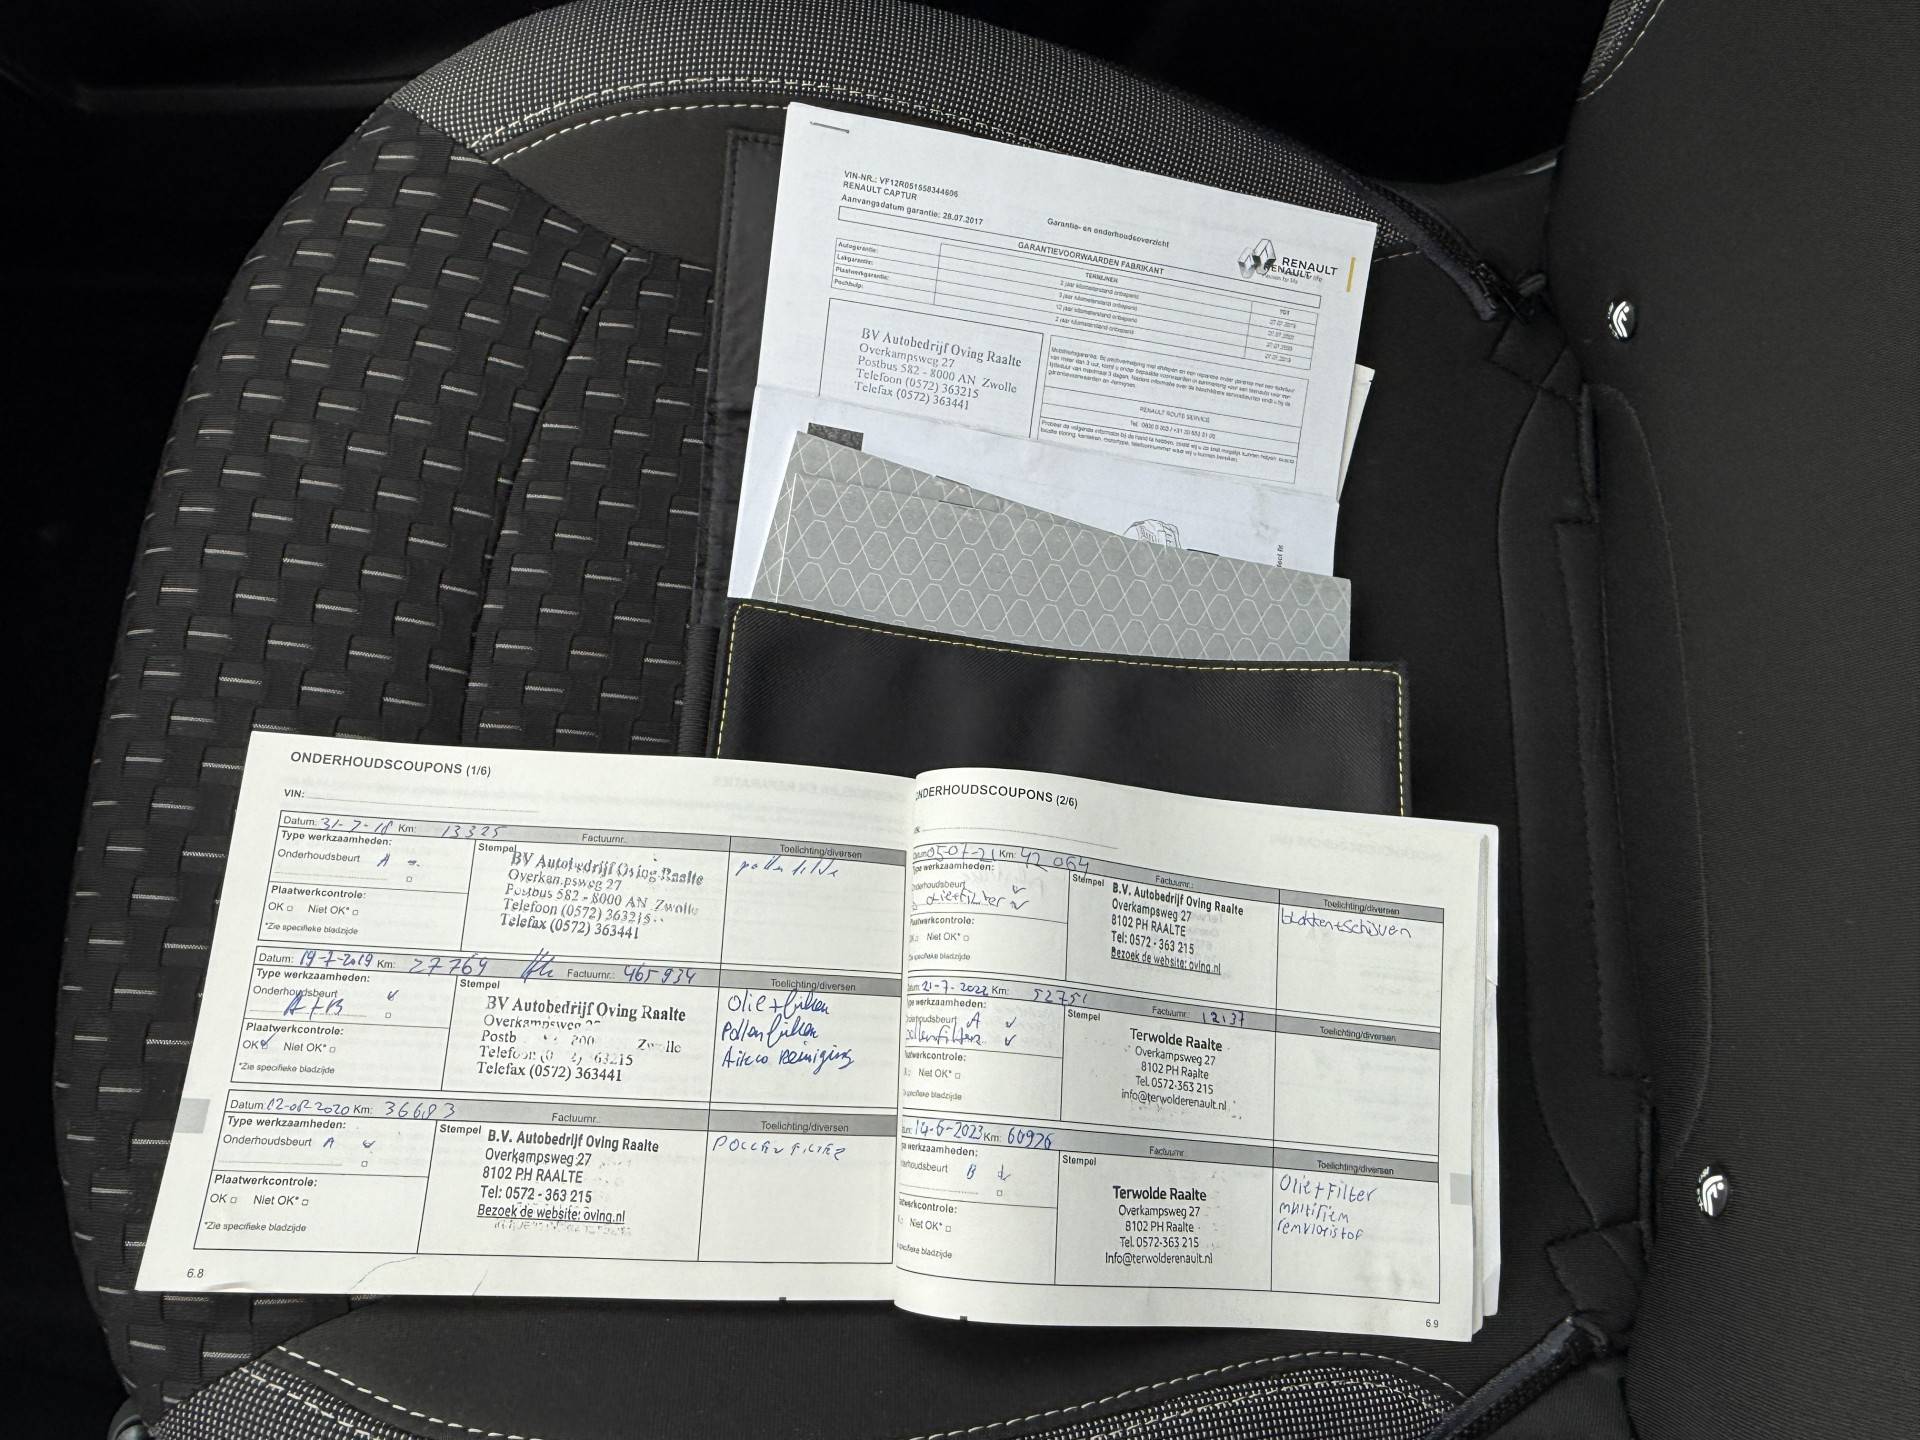 VIN-NR.: VF12R051558344606
RENAULT CAPTUR
Aanvangsdatum garantie: 28.07.2017
Garantie- en onderhoudsoverzicht
RENAULT
GARANTIEVOORWAARDEN FABRIKANT
TERMIJNEN
TOT
Autogarantie:
2 jaar kilometerstand onbeperkt
Lakgarantie:
3 jaar kilometerstand onbeperkt
Plaatwerkgarantie:
12 jaar kilometerstand onbeperkt
Pechhulp:
2 jaar kilometerstand onbeperkt
BV Autobedrijf Oving Raalte
Overkampsweg 27
Postbus 582 - 8000 AN Zwolle
Telefoon (0572) 363215
Telefax (0572) 363441
RENAULT ROUTE SERVICE
ONDERHOUDSCOUPONS (1/6)
VIN:
Datum: 31-7-18 Km: 13325 Factuurnr.:
Type werkzaamheden:
Stempel
Toelichting/diversen
Onderhoudsbeurt A
Plaatwerkcontrole:
OK Niet OK*
*Zie specifieke bladzijde
BV Autobedrijf Oving Raalte
Overkampsweg 27
Postbus 582 - 8000 AN Zwolle
Telefoon (0572) 363215
Telefax (0572) 363441
Datum: 19-7-2019 Km: 27769 Factuurnr.: 465934
Type werkzaamheden:
Stempel
Toelichting/diversen
Onderhoudsbeurt
A+B
Plaatwerkcontrole:
OK Niet OK*
*Zie specifieke bladzijde
BV Autobedrijf Oving Raalte
Overkampsweg 27
Telefax (0572) 363441
Olie+filter
Pollenfilter
Airco Reiniging
Datum: 12-08-2020 Km: 36683 Factuurnr.:
Type werkzaamheden:
Stempel
Toelichting/diversen
Onderhoudsbeurt A
Plaatwerkcontrole:
OK Niet OK*
*Zie specifieke bladzijde
B.V. Autobedrijf Oving Raalte
Overkampsweg 27
8102 PH RAALTE
Tel: 0572 - 363 215
Bezoek de website: oving.nl
POLLEN FILTER
6.8
ONDERHOUDSCOUPONS (2/6)
05-07-21 Km: 42 064 Factuurnr.:
Type werkzaamheden:
Stempel
Toelichting/diversen
Onderhoudsbeurt
olie+Filter
Plaatwerkcontrole:
Niet OK*
B.V. Autobedrijf Oving Raalte
Overkampsweg 27
8102 PH RAALTE
Tel: 0572 - 363 215
Bezoek de website: oving.nl
blokken+schijven
21-7-2022 Km: 52751 Factuurnr.: 12137
Type werkzaamheden:
Stempel
Toelichting/diversen
Onderhoudsbeurt A
pollenfilter
Plaatwerkcontrole:
Niet OK*
Terwolde Raalte
Overkampsweg 27
8102 PH Raalte
Tel. 0572-363 215
info@terwolderenault.nl
14-6-2023 Km: 60926 Factuurnr.
Stempel
Toelichting/diversen
Onderhoudsbeurt B
Plaatwerkcontrole:
Niet OK*
Terwolde Raalte
Overkampsweg 27
8102 PH Raalte
Tel. 0572-363 215
Info@terwolderenault.nl
Olie+Filter
multiriem
remvloeistof
6.9